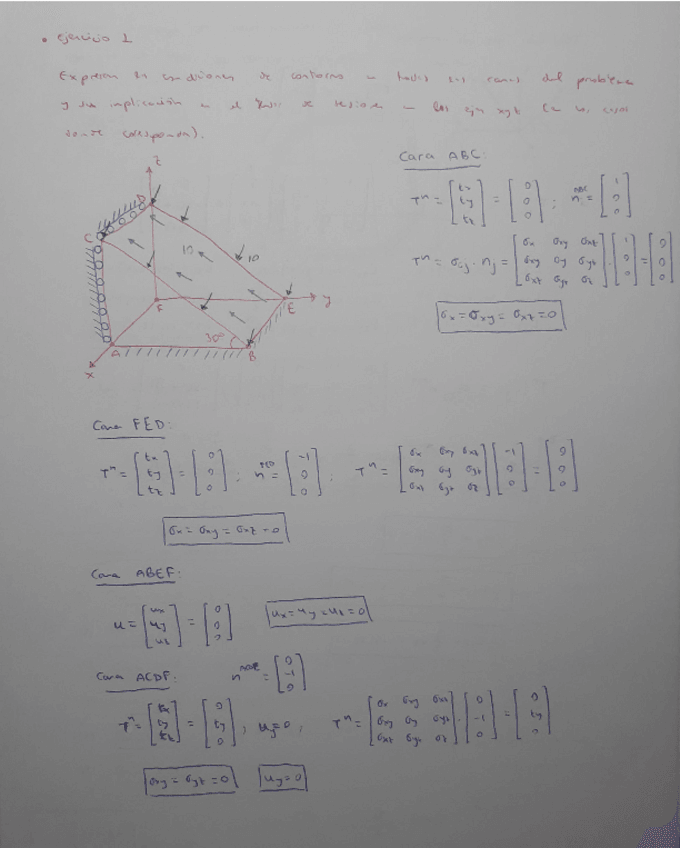 • ejercicio 1
Expresar las condiciones de contorno en todas las caras del problema
y su implicación en el tensor de tensiones en los ejes xyz (en los casos
donde corresponda).
z
D
C
10
10
F
y
E
30º
A
B
x
Cara ABC:
Tⁿ = [tx ty tz] = [0 0 0] ; n^ABC = [1 0 0]
Tⁿ = σij · nj = [σx σxy σxz; σxy σy σyz; σxz σyz σz] · [1 0 0] = [0 0 0]
σx = σxy = σxz = 0
Cara FED:
Tⁿ = [tx ty tz] = [0 0 0] ; n^FED = [-1 0 0] ; Tⁿ = [σx σxy σxz; σxy σy σyz; σxz σyz σz] [-1 0 0] = [0 0 0]
σx = σxy = σxz = 0
Cara ABEF:
u = [ux uy uz] = [0 0 0] ux = uy = uz = 0
Cara ACDF: n = [0 -1 0]
Tⁿ = [tx ty tz] = [0 ty 0] ; uy = 0 ; Tⁿ = [σx σxy σxz; σxy σy σyz; σxz σyz σz] · [0 -1 0] = [0 ty 0]
σxy = σyz = 0 uy = 0